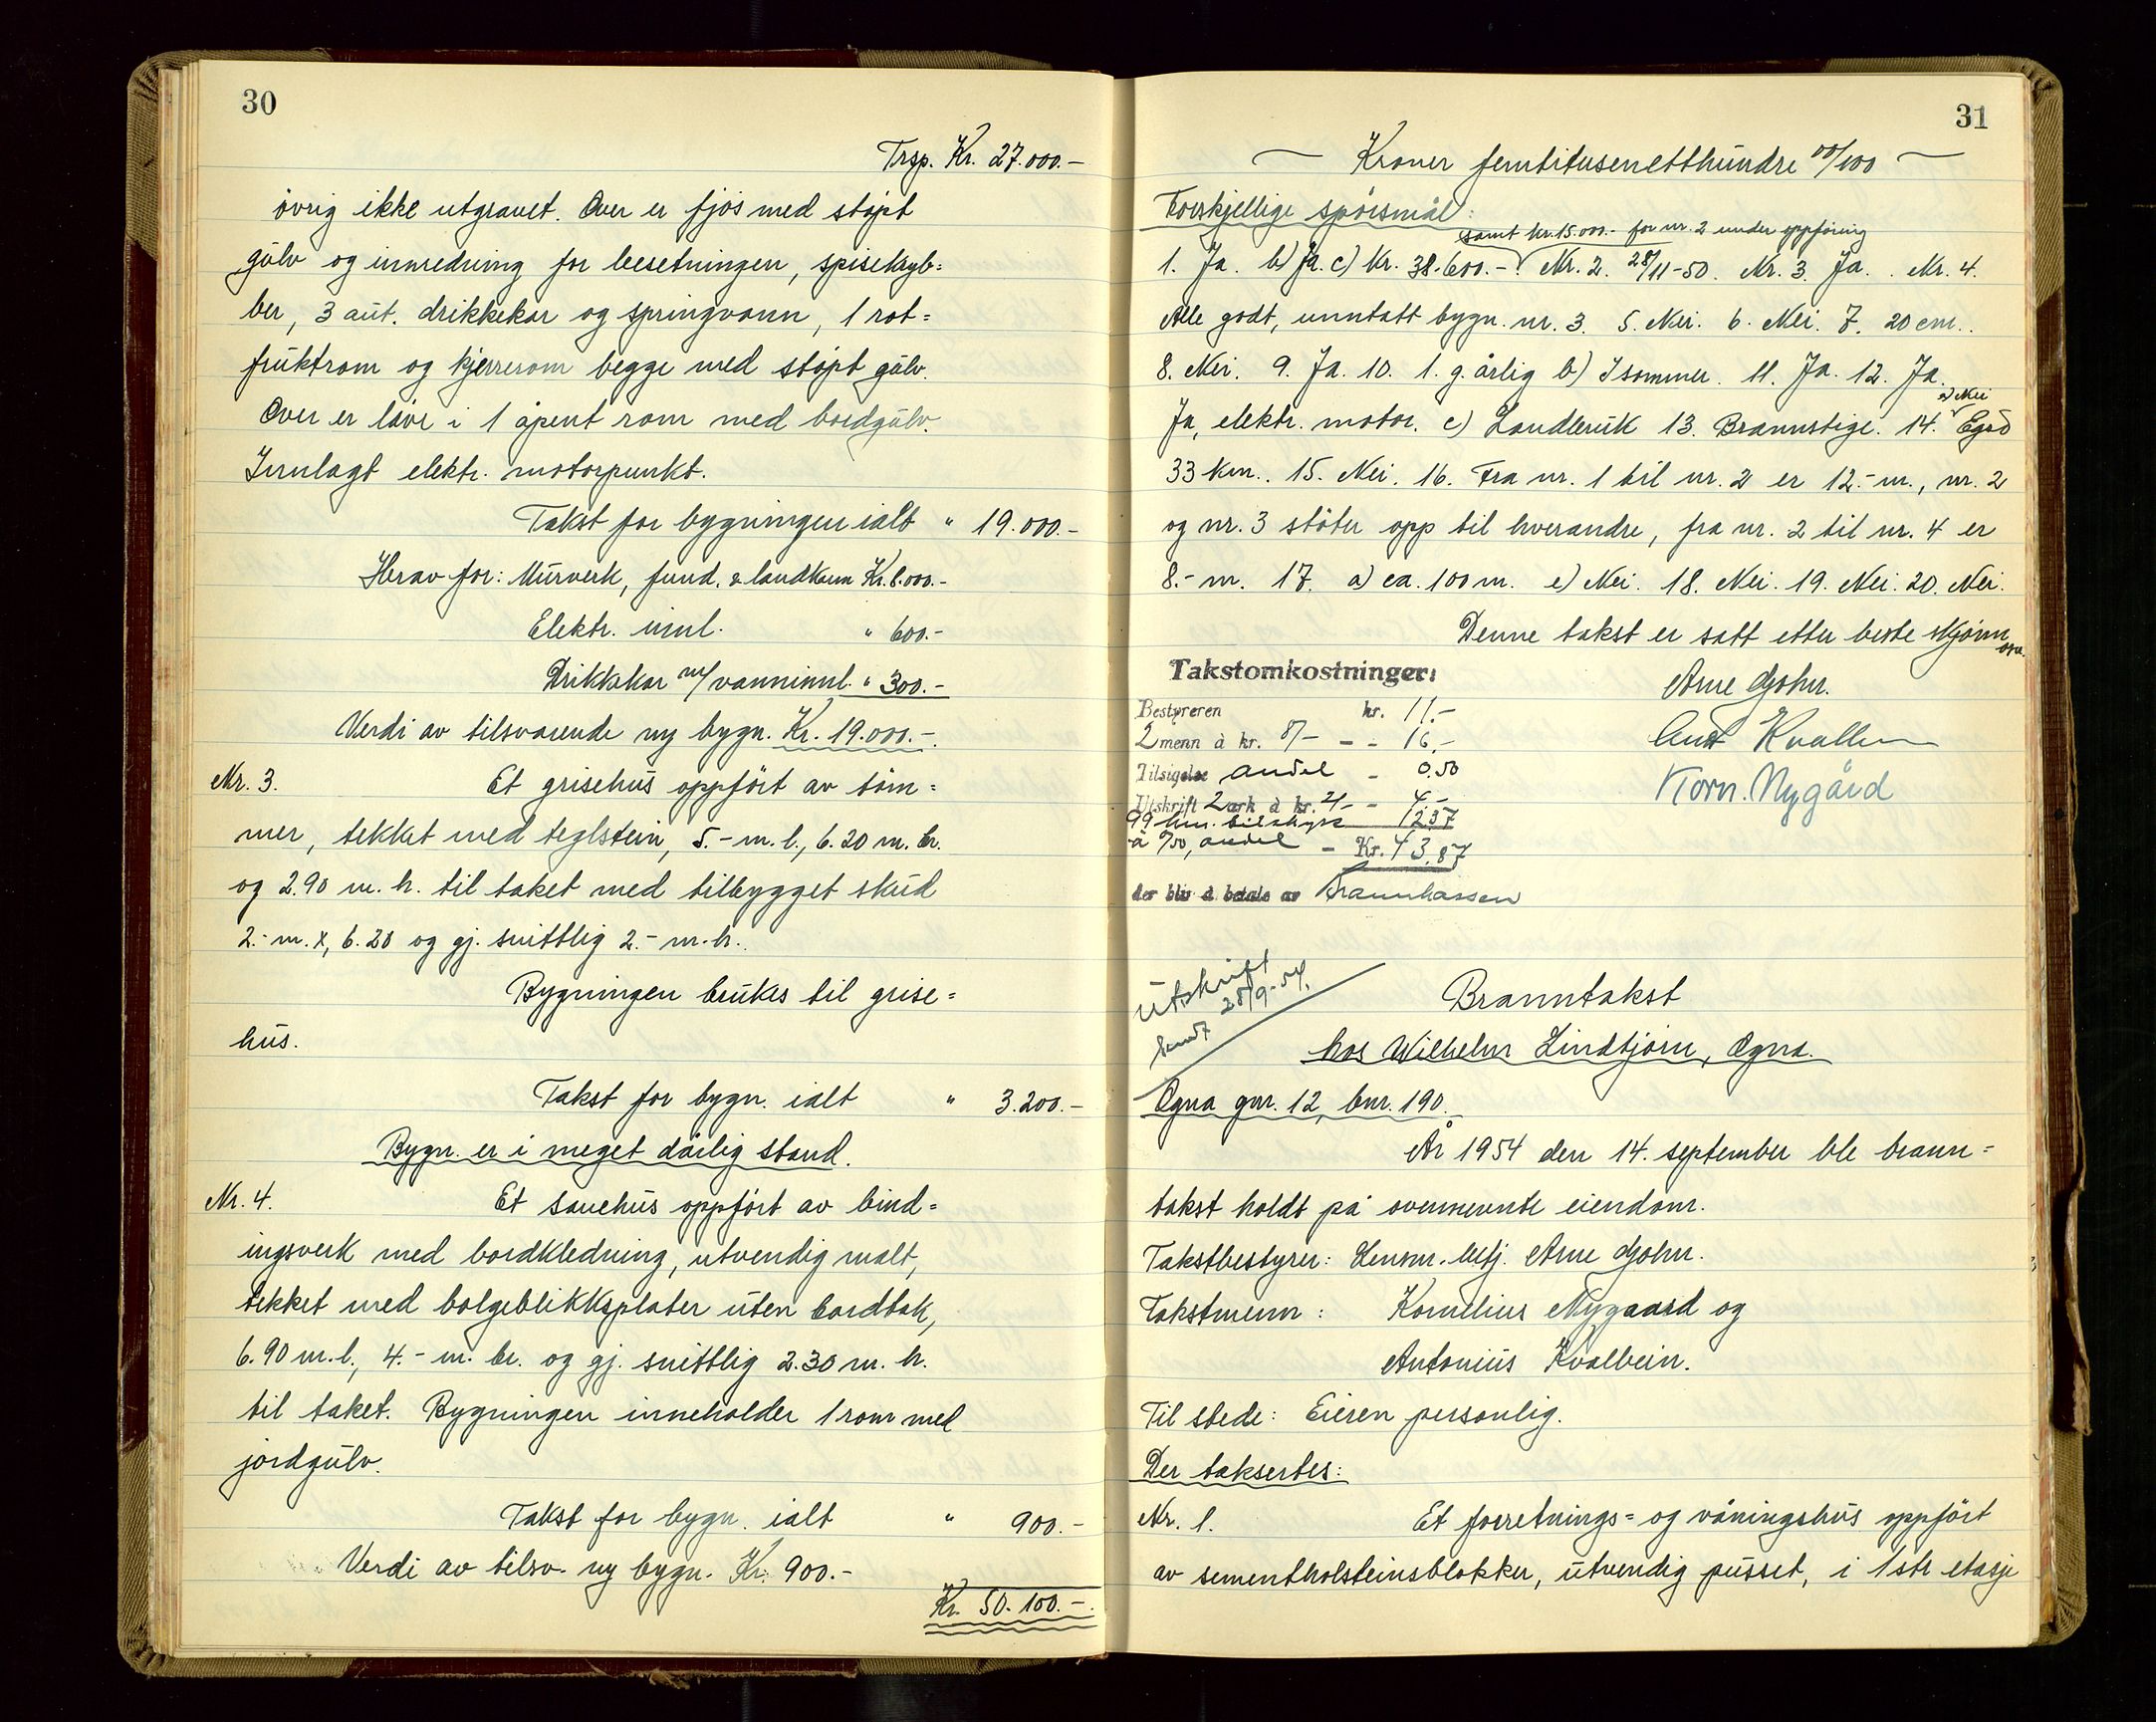 30
Trsp. Kr. 27.000.-
övrig ikke utgravet. Over er fjös med stöpt
gulv og innredning for besetningen, spisekryb=
ber, 3 aut. drikkekar og springvann, 1 rot=
fruktrom og kjerrerom begge med stöpt gulv.
Over er låve i 1 åpent rom med bordgulv.
Innlagt elektr. motorpunkt.
Takst for bygningen ialt " 19.000.-
Herav for: Murverk, fund. & landkum Kr. 8.000.-
Elektr. innl. " 600.-
Drikkekar m/vanninnl. " 300.-
Verdi av tilsvarende ny bygn. Kr. 19.000.-.
Nr. 3. Et grisehus oppfört av töm=
mer, tekket med teglstein, 5.- m. l., 6.20 m. br.
og 2.90 m. h. til taket med tilbygget skud
2.- m. x, 6.20 og gj. snittlig 2.- m. h..
Bygningen brukes til grise=
hus.
Takst for bygn. ialt " 3.200.-
Bygn. er i meget dårlig stand.
Nr. 4. Et sauehus oppfört av bind=
ingsverk med bordkledning, utvendig malt,
tekket med bolgeblikksplater uten bordtak,
6.90 m. l., 4.- m. br. og gj. snittlig 2.30 m. h.
til taket. Bygningen inneholder 1 rom med
jordgulv.
Takst for bygn. ialt " 900.-
Verdi av tilsv. ny bygn. Kr. 900.-
Kr. 50.100.-.
31
Kroner femtitusenetthundre 00/100
Forskjellige spörsmål:
samt kr. 15.000.- for nr. 2 under oppföring
1. Ja. b) Ja. c) Kr. 38.600.-. Nr. 2. 28/11-50. Nr. 3. Ja. . Nr. 4.
Alle godt, unntatt bygn. nr. 3. 5. Nei. 6. Nei. 7. 20 cm..
8. Nei. 9. Ja. 10. 1. g. årlig b) I sommer. 11. Ja. 12. Ja.
a) Nei
Ja, elektr. motor. c) Landbruk 13. Brannstige. 14. Egrö
33 km.. 15. Nei. 16. Fra nr. 1 til nr. 2 er 12.- m., nr. 2
og nr. 3 stöter opp til hverandre, fra nr. 2 til nr. 4 er
8.- m. 17. a) ca. 100 m. e) Nei. 18. Nei. 19. Nei. 20. Nei.
Denne takst er satt etter beste skjönn
osv.
Takstomkostninger:
Arne Gjohn.
Bestyreren kr. 11.-
2 menn à kr. 8/- - - 16.-
Tilsigelse andel - 0.50
Korn. Nygård
Utskrift 2 ark à kr. 2/- - 4.-
99 km. bilskyss 12.37
à 0/50, andel - Kr. 43.87
der blir å betale av Brannkassen
Utskrift
sendt 28/9-54.
Branntakst
hos Wilhelm Lindtjörn, Ogna.
Ogna gnr. 12, bnr. 190.
År 1954 den 14. september ble brann=
takst holdt på ovennevnte eiendom.
Takstbestyrer: Lensm. betj. Arne Gjohn.
Takstmenn: Kornelius Nygaard og
Antonius Kvalbein.
Til stede: Eieren personlig.
Der taksertes:
Nr. 1. Et forretnings= og våningshus oppfört
av sementholsteinsblokker, utvendig pusset, i 1ste etasje